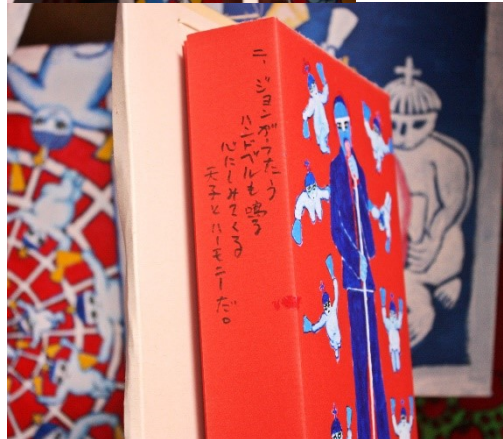 二、ジョンがうたう
ハンドベルも鳴る
心にしみてくる
天子とハーモニーだ。